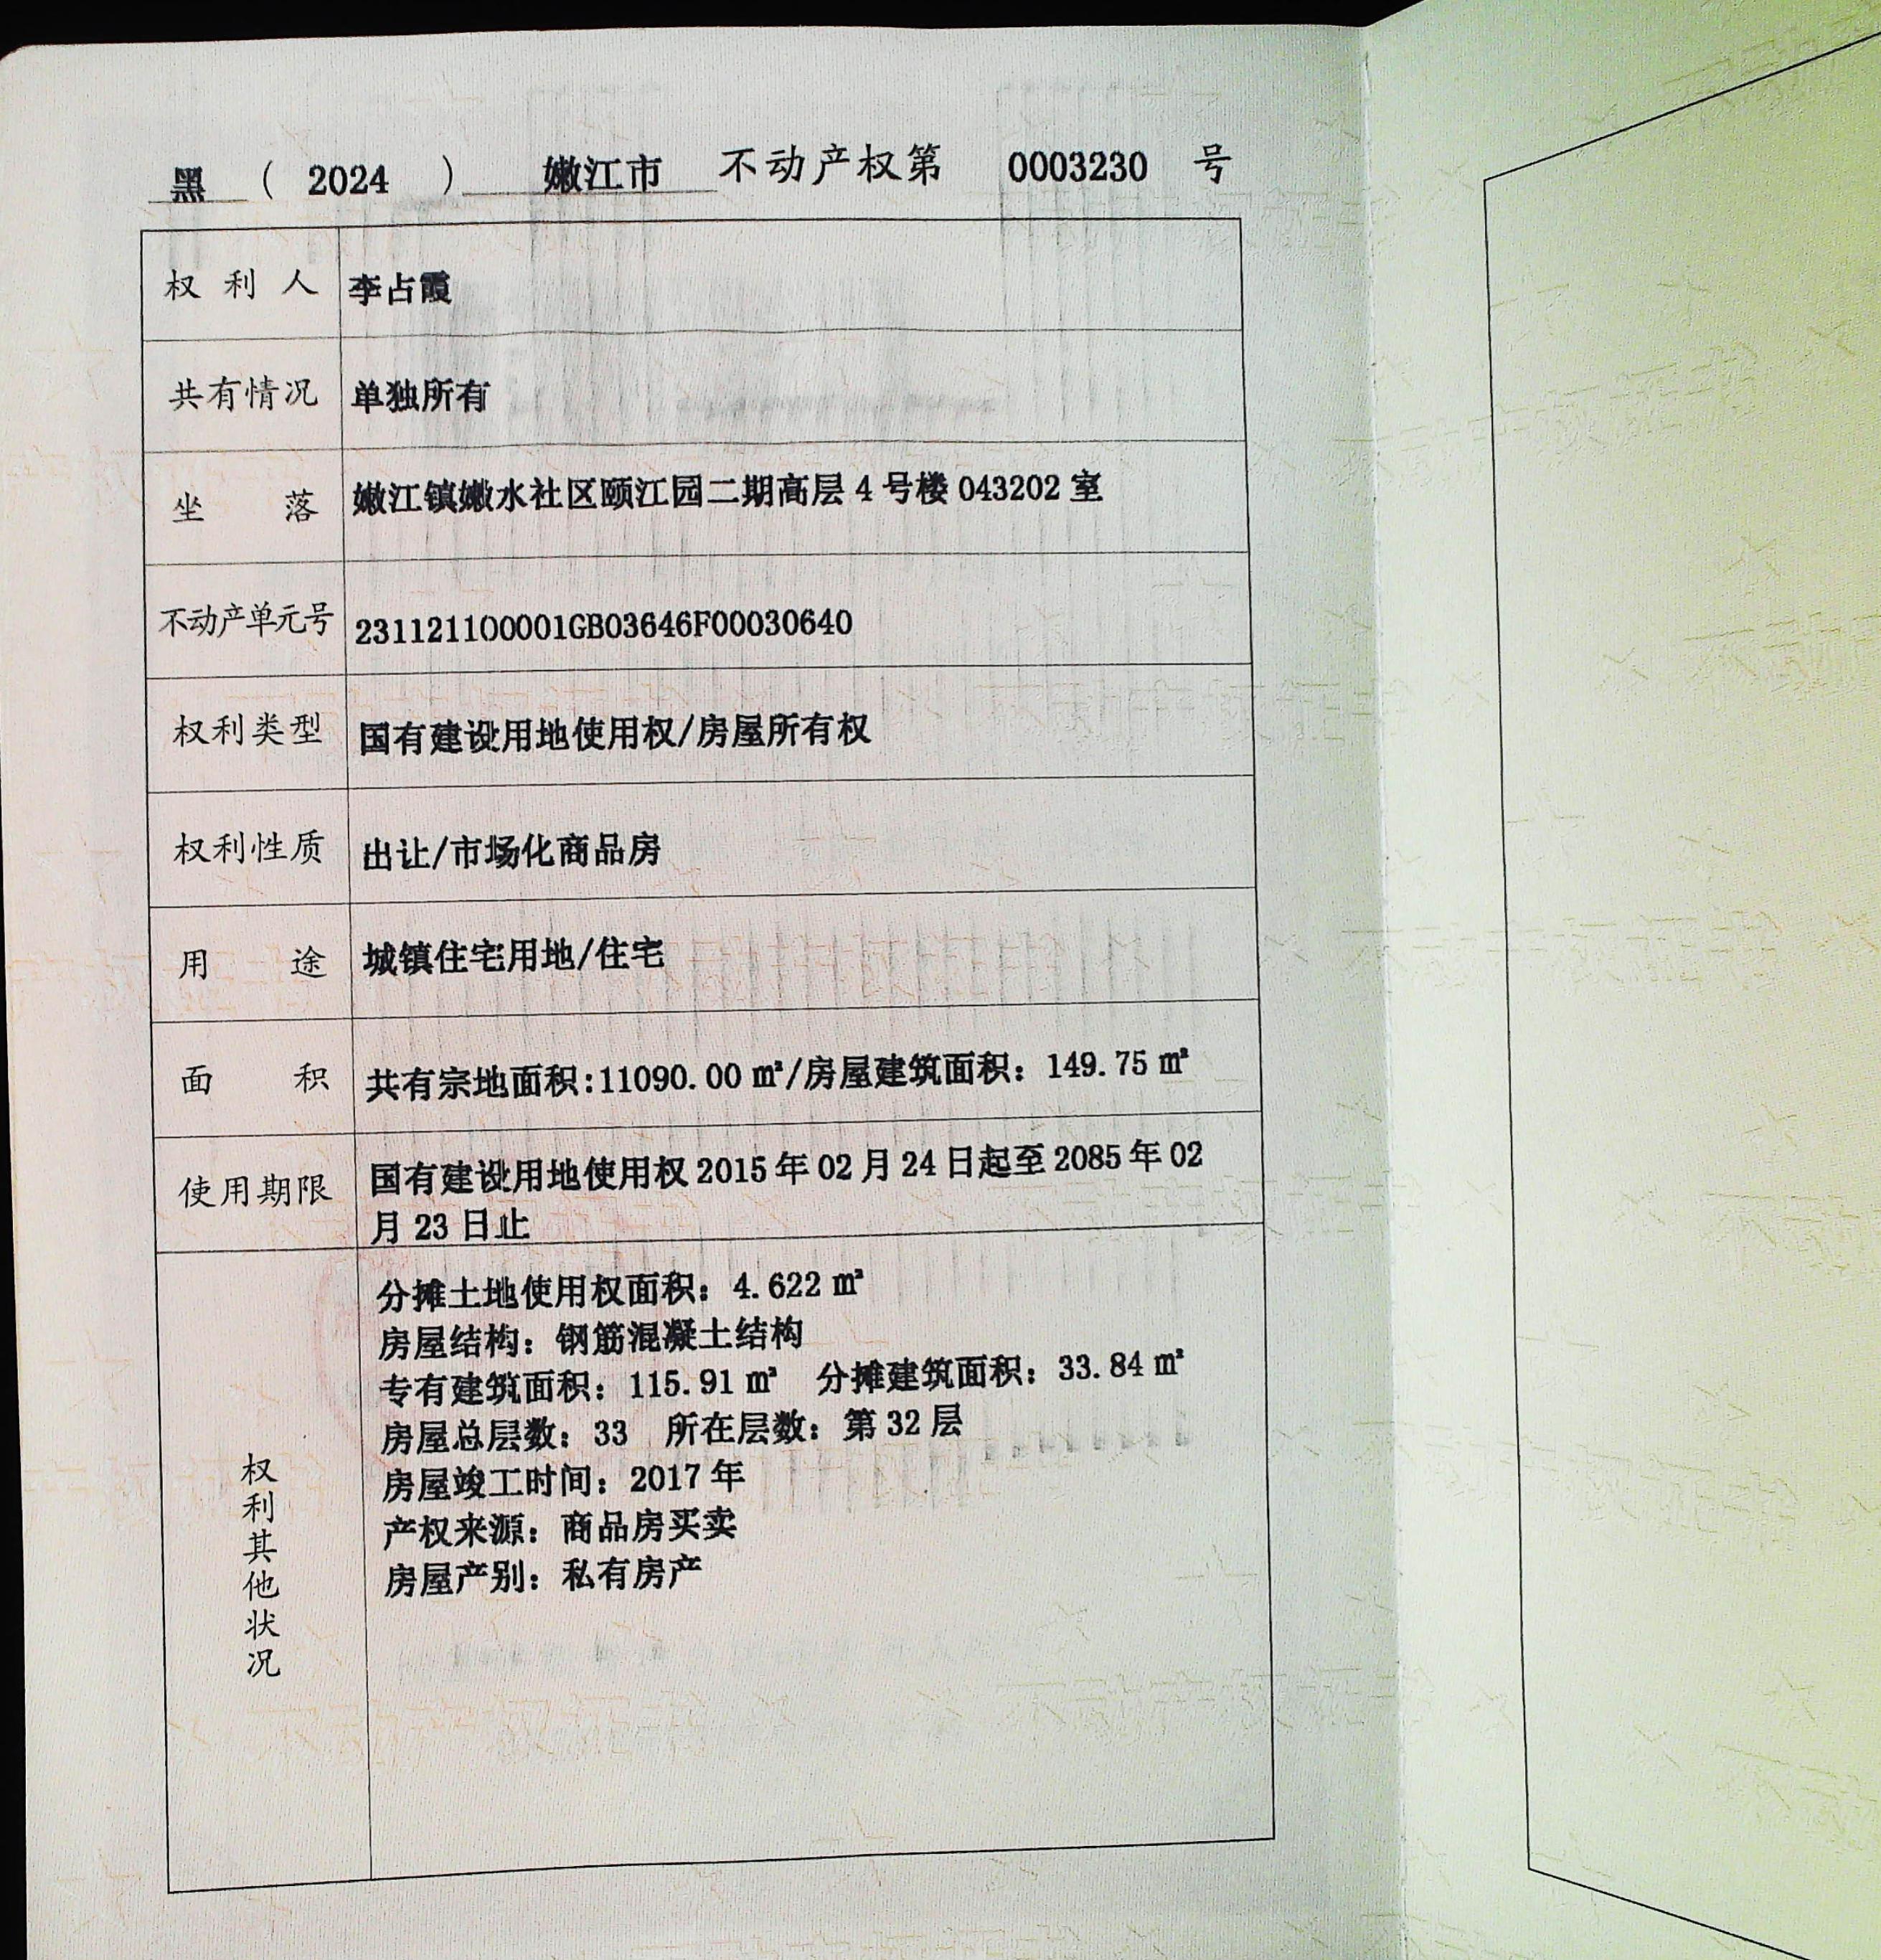 黑 ( 2024 ) 嫩江市 不动产权第 0003230 号
权利人 李占霞
共有情况 单独所有
坐落 嫩江镇嫩水社区颐江园二期高层 4 号楼 043202 室
不动产单元号 231121100001GB03646F00030640
权利类型 国有建设用地使用权/房屋所有权
权利性质 出让/市场化商品房
用途 城镇住宅用地/住宅
面积 共有宗地面积:11090.00 ㎡/房屋建筑面积：149.75 ㎡
使用期限 国有建设用地使用权 2015 年 02 月 24 日起至 2085 年 02
月 23 日止
权利其他状况
分摊土地使用权面积：4.622 ㎡
房屋结构：钢筋混凝土结构
专有建筑面积：115.91 ㎡ 分摊建筑面积：33.84 ㎡
房屋总层数：33 所在层数：第 32 层
房屋竣工时间：2017 年
产权来源：商品房买卖
房屋产别：私有房产